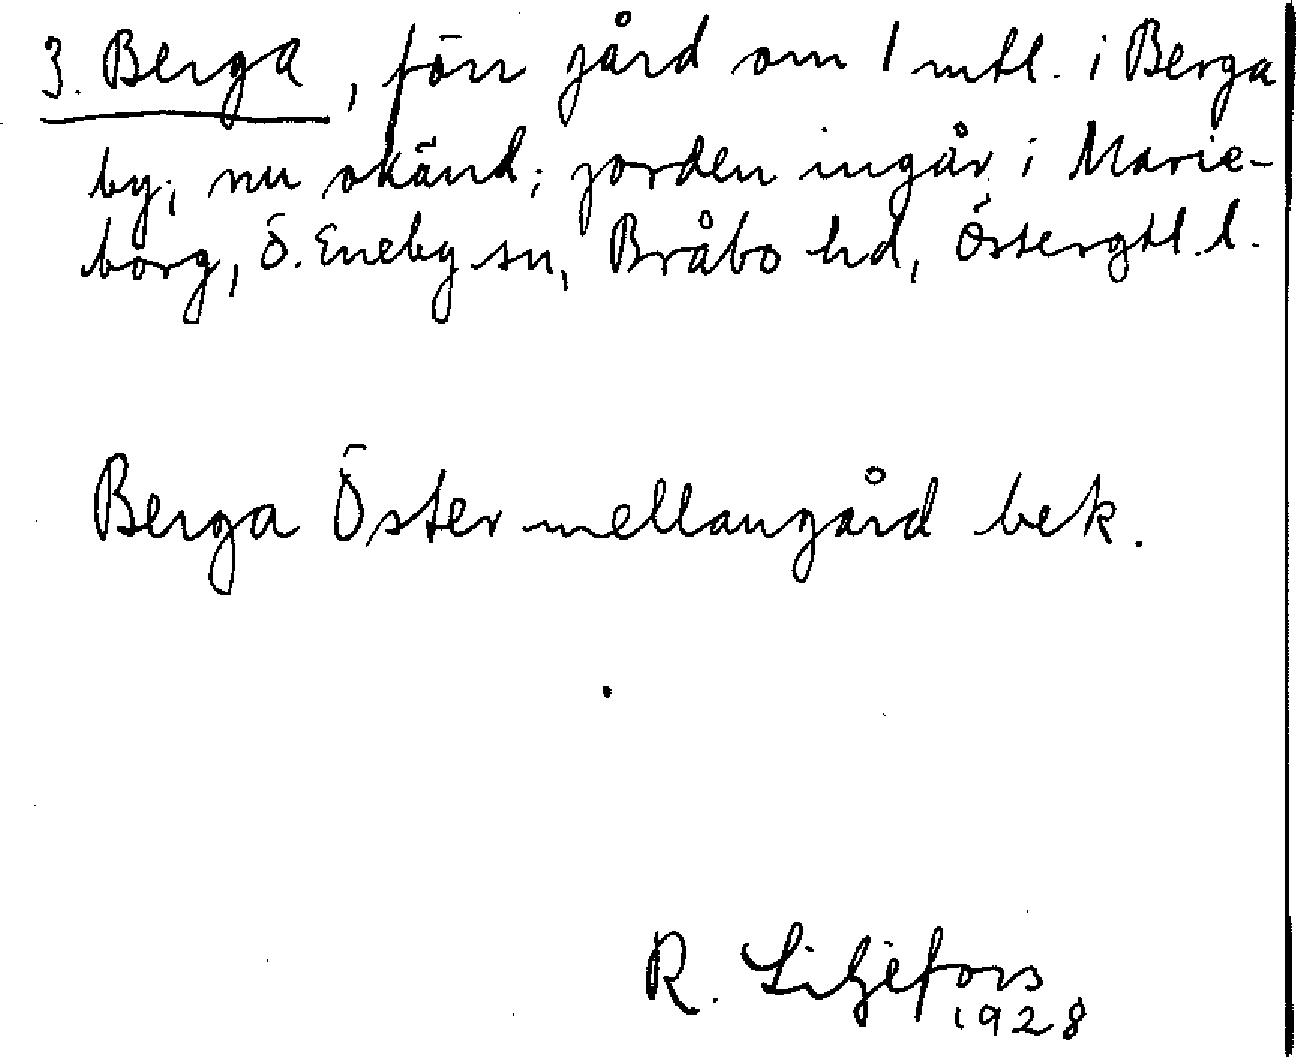 3. Berga, förr gård om 1 mtl. i Berga
by; nu okänd; jorden ingår i Marie-
borg, Ö. Eneby sn, Bråbo hd, Östergtl. l.
Berga Östermellangård bek.
R. Liljefors
1928